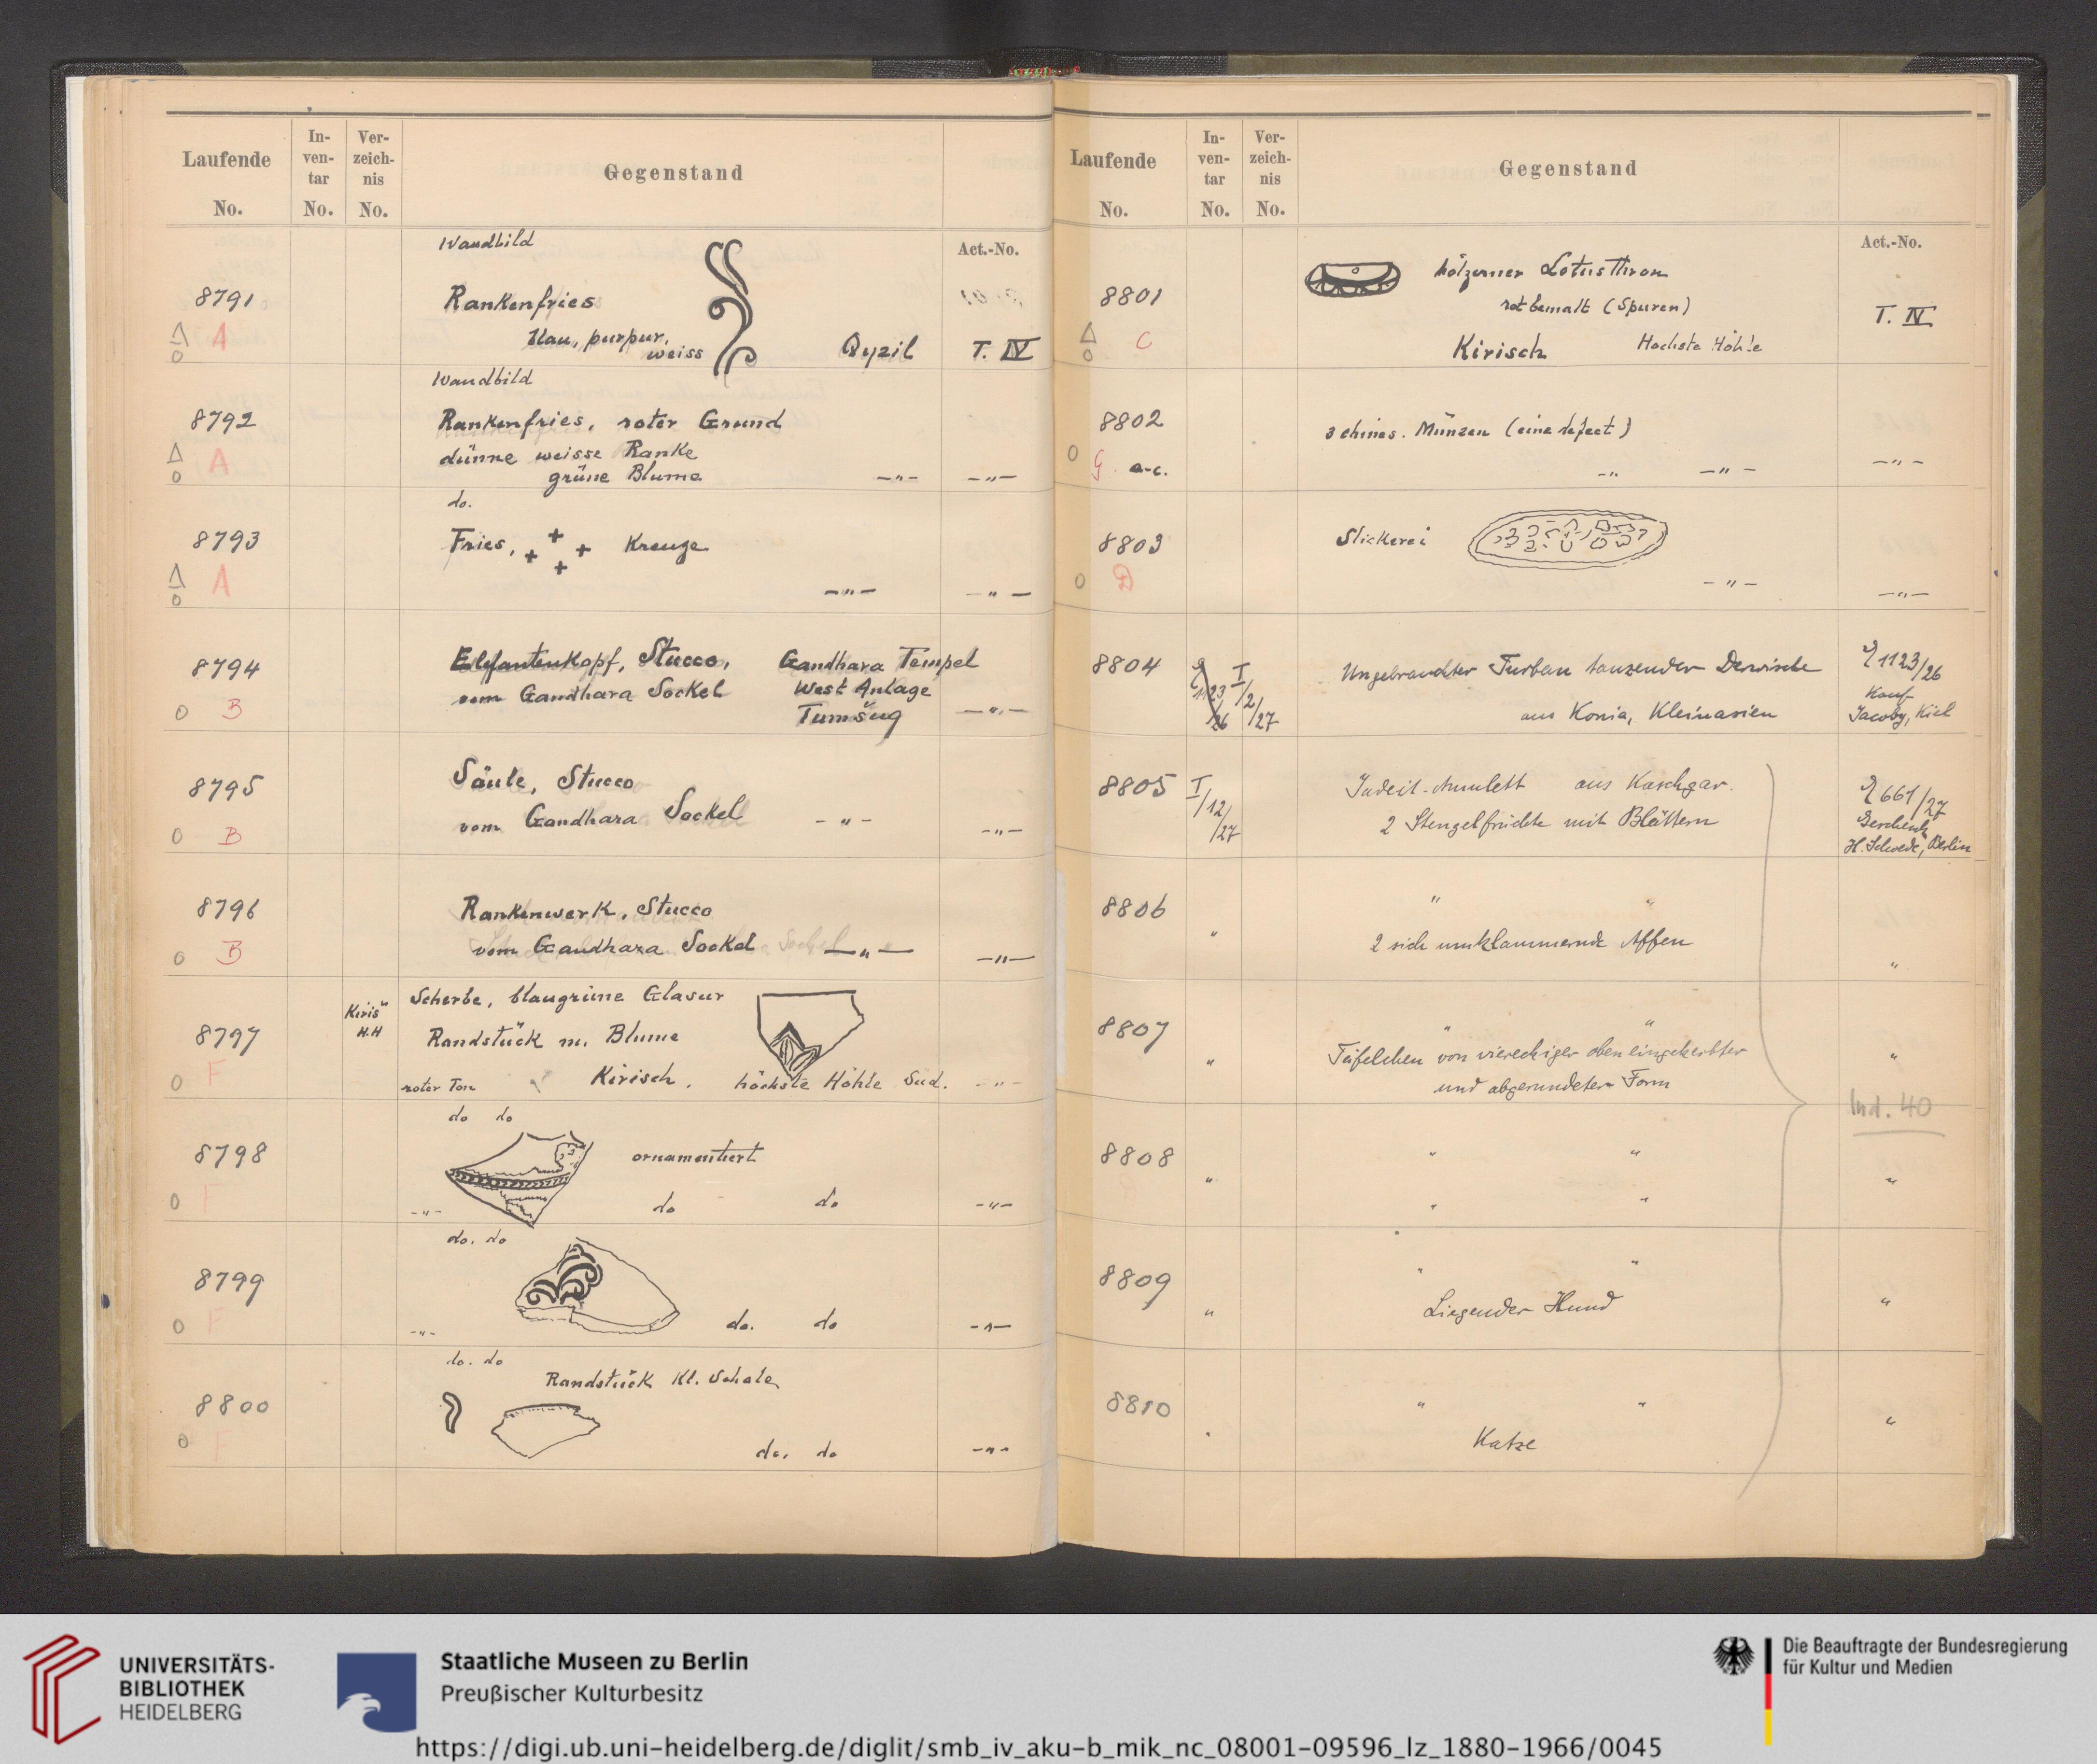 Laufende
No.
In-
ven-
tar
No.
Ver-
zeich-
nis
No.
Gegenstand
Act.-No.
8791
Δ A
o
Wandbild
Rankenfries
blau, purpur,
weiss
Qyzil
T. IV
8792
Δ A
o
Wandbild
Rankenfries, roter Grund
dünne weisse Ranke
grüne Blume
—"— —"—
8793
Δ A
o
do.
Fries, + + + + Kreuze
—"— —"—
8794
o B
Elefantenkopf, Stucco,
vom Gandhara Sockel
Gandhara Tempel
West Anlage
Tumšuq
—"—
8795
o B
Säule, Stucco
vom Gandhara Sockel —"— —"—
8796
o B
Rankenwerk, Stucco
vom Gandhara Sockel —"— —"—
8797
o F
Kiriš
H.H
Scherbe, blaugrüne Glasur
Randstück m. Blume
roter Ton Kirisch. höchste Höhle Süd. —"—
8798
o F
do do
ornamentiert
—"— do do —"—
8799
o F
do. do
—"— do. do —"—
8800
o F
do. do
Randstück Kl. Schale
do. do —"—
Laufende
No.
In-
ven-
tar
No.
Ver-
zeich-
nis
No.
Gegenstand
Act.-No.
8801
Δ C
o
hölzerner Lotusthron
rot bemalt (Spuren)
Kirisch Höchste Höhle
T. IV
8802
o G a-c.
3 chines. Münzen (eine defect)
—" —"— —"—
8803
o D
Stickerei
—"— —"—
8804
I/2/27
Ungebrauchter Turban tanzender Derwische
aus Konia, Kleinasien
1123/26
Kauf
Jacoby, Kiel
8805
I/12/27
Jadeit-Amulett aus Kaschgar.
2 Stengelfrüchte mit Blättern
661/27
Geschenk
H. Schwede, Berlin
8806
" "
" 2 sich umklammernde Affen "
8807
" "
" Täfelchen von viereckiger oben eingekerbter "
und abgerundeter Form
Ind. 40
8808
" "
" " " "
8809
" "
" Liegender Hund "
8810
" "
" Katze "
UNIVERSITÄTS-
BIBLIOTHEK
HEIDELBERG
Staatliche Museen zu Berlin
Preußischer Kulturbesitz
Die Beauftragte der Bundesregierung
für Kultur und Medien
https://digi.ub.uni-heidelberg.de/diglit/smb_iv_aku-b_mik_nc_08001-09596_lz_1880-1966/0045